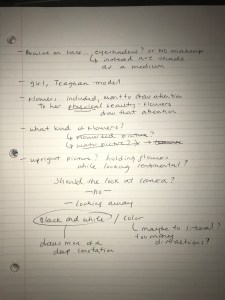 - Powder on face, eyeshadow? or no makeup
↳ instead use shade as a medium
- girl, Teaghan model
- Flowers included, want to draw attention
To her physical beauty. Flowers
draw that attention
- What kind of flowers?
↳ picture?
↳ picture? →
- Upright picture? holding flowers
while looking sentimental?
Should she look at camera?
- No -
- Looking away
Black and white / color
↳ maybe to
too many
distractions?
draws more of a
deep connotation